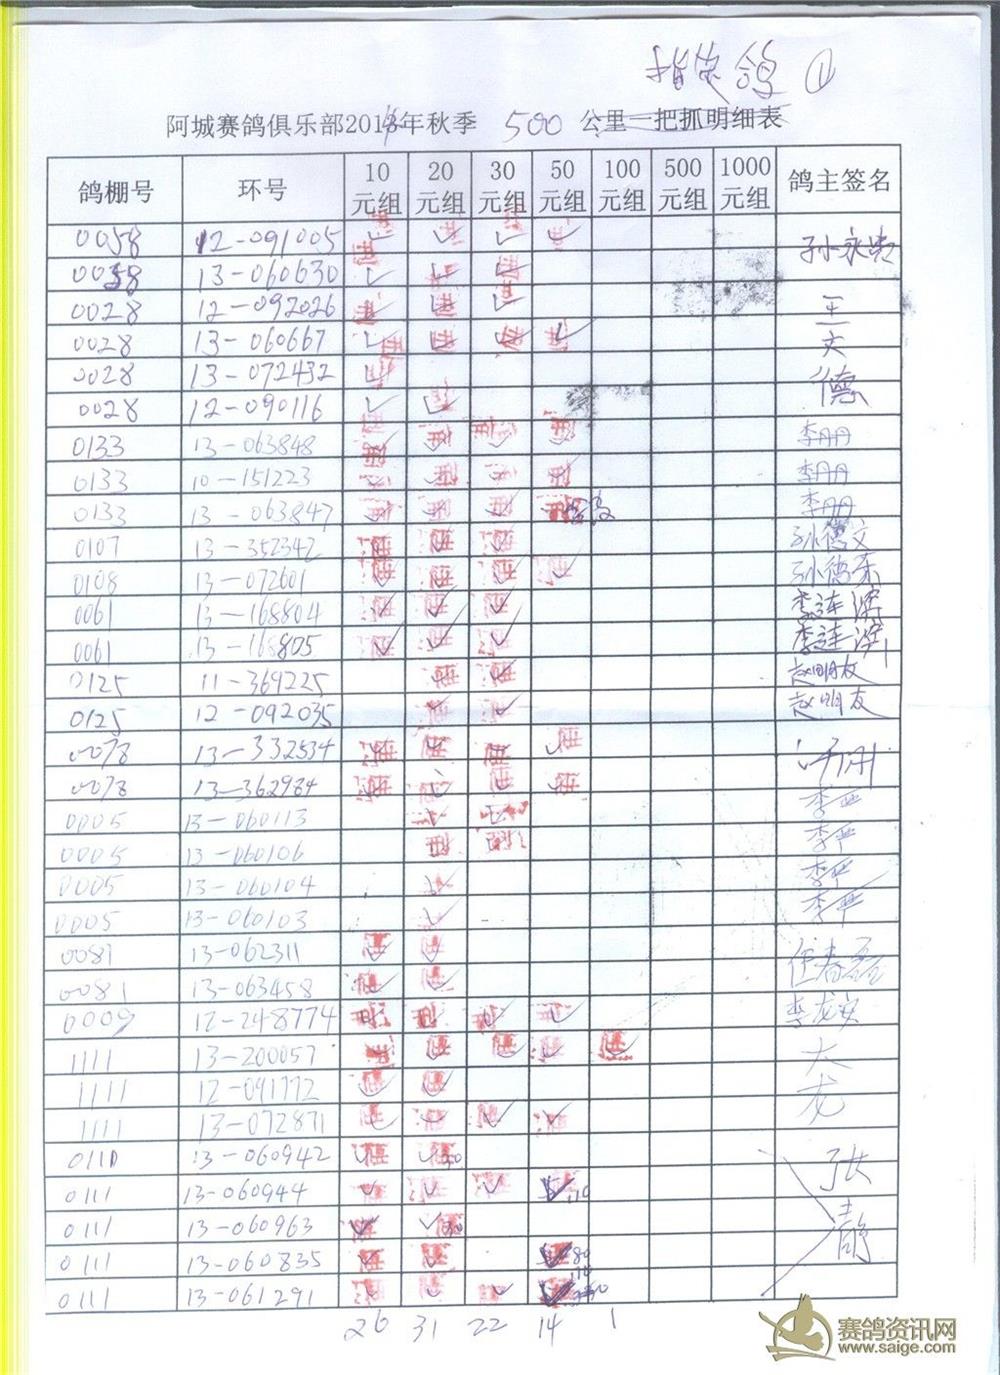 指定鸽 ①
阿城赛鸽俱乐部2014年秋季 500 公里一把抓明细表
鸽棚号 环号 10元组 20元组 30元组 50元组 100元组 500元组 1000元组 鸽主签名
0058 12-091005 ✓ ✓ ✓ ✓ 孙永贵
0058 13-060630 ✓ ✓ ✓
0028 12-092026 ✓ ✓ 王
0028 13-060667 ✓ ✓ ✓ ✓ 文
0028 13-072432 ✓ 德
0028 12-090116 ✓ ✓
0133 13-063848 李丹丹
0133 10-151223 李丹丹
0133 13-063847 李丹丹
0107 13-352342 孙德文
0108 13-072601 孙德荣
0061 13-168804 ✓ ✓ ✓ 李连滨
0061 13-168805 ✓ ✓ ✓ 李连滨
0125 11-364225 赵明友
0125 12-092035 赵明友
0078 13-332534
0078 13-362984
0005 13-060113 李严
0005 13-060106 李严
0005 13-060104 ✓ 李严
0005 13-060103 ✓ 李严
0081 13-062311 ✓ ✓
0081 13-063458 ✓ ✓
0009 12-248774 ✓ ✓ ✓ ✓ 李龙安
1111 13-200057 ✓ ✓ ✓ ✓ ✓ 大
1111 12-091772 ✓ ✓ 龙
1111 13-072871 ✓ ✓ ✓ ✓
0111 13-060942 ✓ ✓ 张
0111 13-060944 ✓ ✓ ✓ ✓
0111 13-060963 ✓ ✓ 静
0111 13-060835 ✓ ✓ ✓
0111 13-061291 ✓ ✓ ✓ ✓
26 31 22 14 1
赛鸽资讯网
www.saige.com